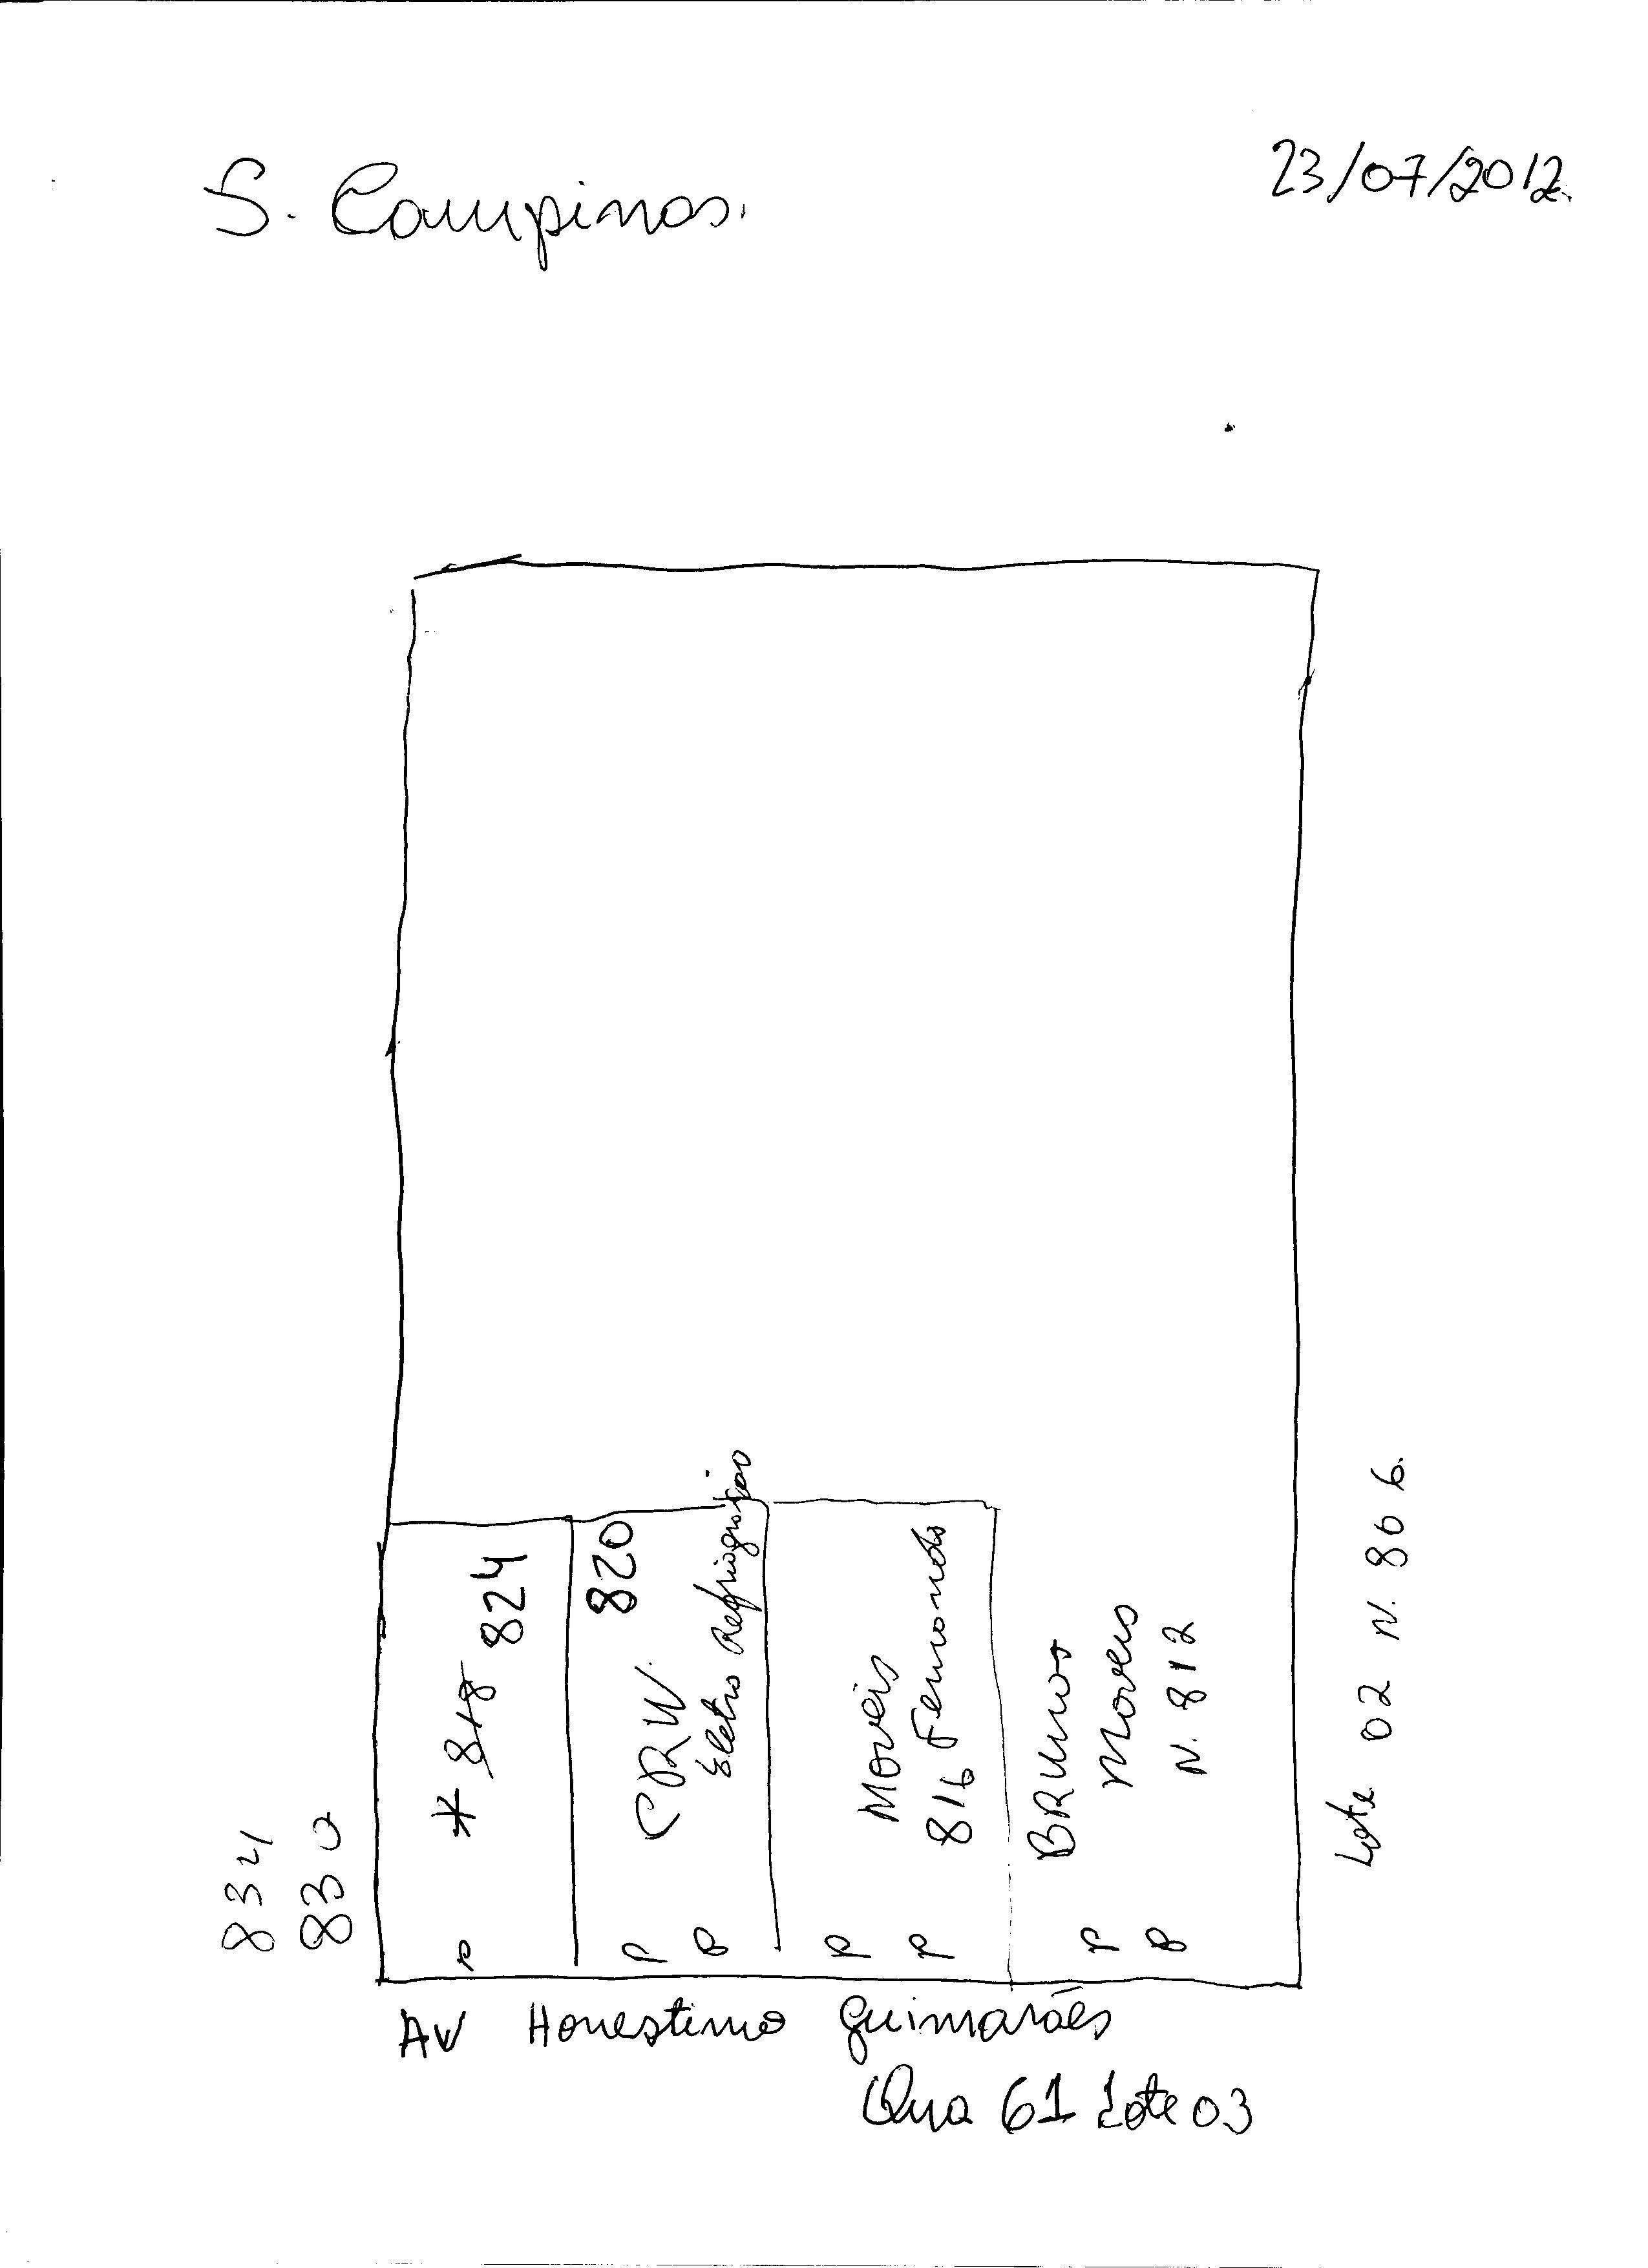 S. Campinas.
23/07/2012.
834
830
* 818 824
P
820
CRW
Eletro Refrigeração
P P
Moveis
816 Fernando
P P
BRunos
Moveis
N. 812
P P
Lote 02 N. 806.
Av Honestino Guimarães
Qua 61 Lote 03